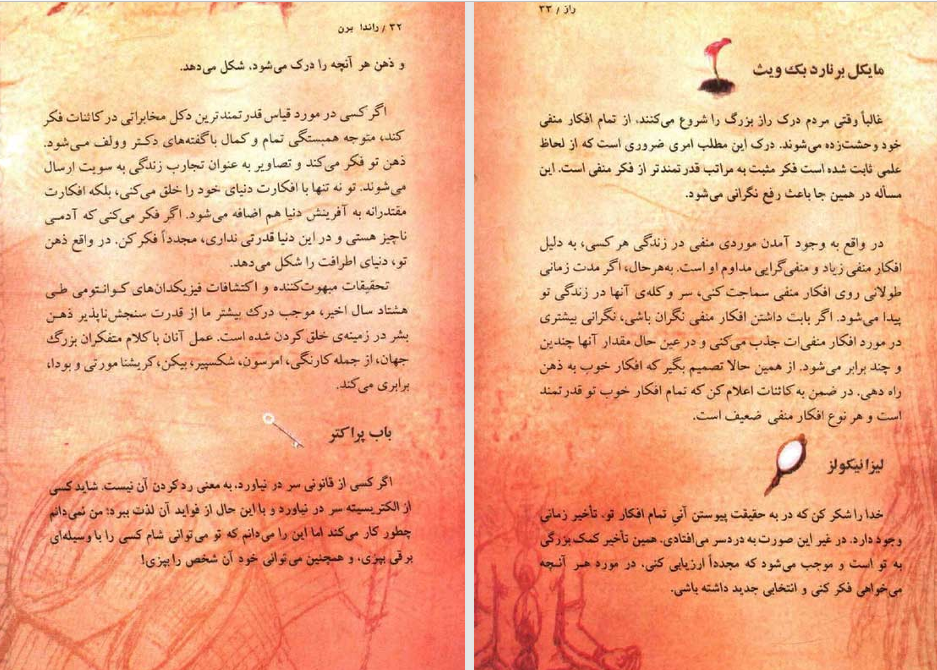 ۳۲ / راندا برن
و ذهن هر آنچه را درک می‌شود، شکل می‌دهد.
اگر کسی در مورد قیاس قدرتمندترین دکل مخابراتی در کائنات فکر
کند، متوجه همبستگی تمام و کمال با گفته‌های دکتر وولف می‌شود.
ذهن تو فکر می‌کند و تصاویر به عنوان تجارب زندگی به سویت ارسال
می‌شوند. تو نه تنها با افکارت دنیای خود را خلق می‌کنی، بلکه افکارت
مقتدرانه به آفرینش دنیا هم اضافه می‌شود. اگر فکر می‌کنی که آدمی
ناچیز هستی و در این دنیا قدرتی نداری، مجدداً فکر کن. در واقع ذهن
تو، دنیای اطرافت را شکل می‌دهد.
تحقیقات مبهوت‌کننده و اکتشافات فیزیکدان‌های کوانتومی طی
هشتاد سال اخیر، موجب درک بیشتر ما از قدرت سنجش‌ناپذیر ذهن
بشر در زمینه‌ی خلق کردن شده است. عمل آنان با کلام متفکران بزرگ
جهان، از جمله کارنگی، امرسون، شکسپیر، بیکن، کریشنا مورتی و بودا،
برابری می‌کند.
باب پراکتر
اگر کسی از قانونی سر در نیاورد، به معنی رد کردن آن نیست. شاید کسی
از الکتریسیته سر در نیاورد و با این حال از فواید آن لذت ببرد؛ من نمی‌دانم
چطور کار می‌کند اما این را می‌دانم که تو می‌توانی شام کسی را با وسیله‌ای
برقی بپزی، و همچنین می‌توانی خود آن شخص را بپزی!
راز / ۳۳
مایکل برنارد بک ویث
غالباً وقتی مردم درک راز بزرگ را شروع می‌کنند، از تمام افکار منفی
خود وحشت‌زده می‌شوند. درک این مطلب امری ضروری است که از لحاظ
علمی ثابت شده است فکر مثبت به مراتب قدرتمندتر از فکر منفی است. این
مسأله در همین جا باعث رفع نگرانی می‌شود.
در واقع به وجود آمدن موردی منفی در زندگی هر کسی، به دلیل
افکار منفی زیاد و منفی‌گرایی مداوم او است. به‌هرحال، اگر مدت زمانی
طولانی روی افکار منفی سماجت کنی، سر و کله‌ی آنها در زندگی تو
پیدا می‌شود. اگر بابت داشتن افکار منفی نگران باشی، نگرانی بیشتری
در مورد افکار منفی‌ات جذب می‌کنی و در عین حال مقدار آنها چندین
و چند برابر می‌شود. از همین حالا تصمیم بگیر که افکار خوب به ذهن
راه دهی. در ضمن به کائنات اعلام کن که تمام افکار خوب تو قدرتمند
است و هر نوع افکار منفی ضعیف است.
لیزا نیکولز
خدا را شکر کن که در به حقیقت پیوستن آنی تمام افکار تو، تأخیر زمانی
وجود دارد. در غیر این صورت به دردسر می‌افتادی. همین تأخیر کمک بزرگی
به تو است و موجب می‌شود که مجدداً ارزیابی کنی، در مورد هر آنچه
می‌خواهی فکر کنی و انتخابی جدید داشته باشی.